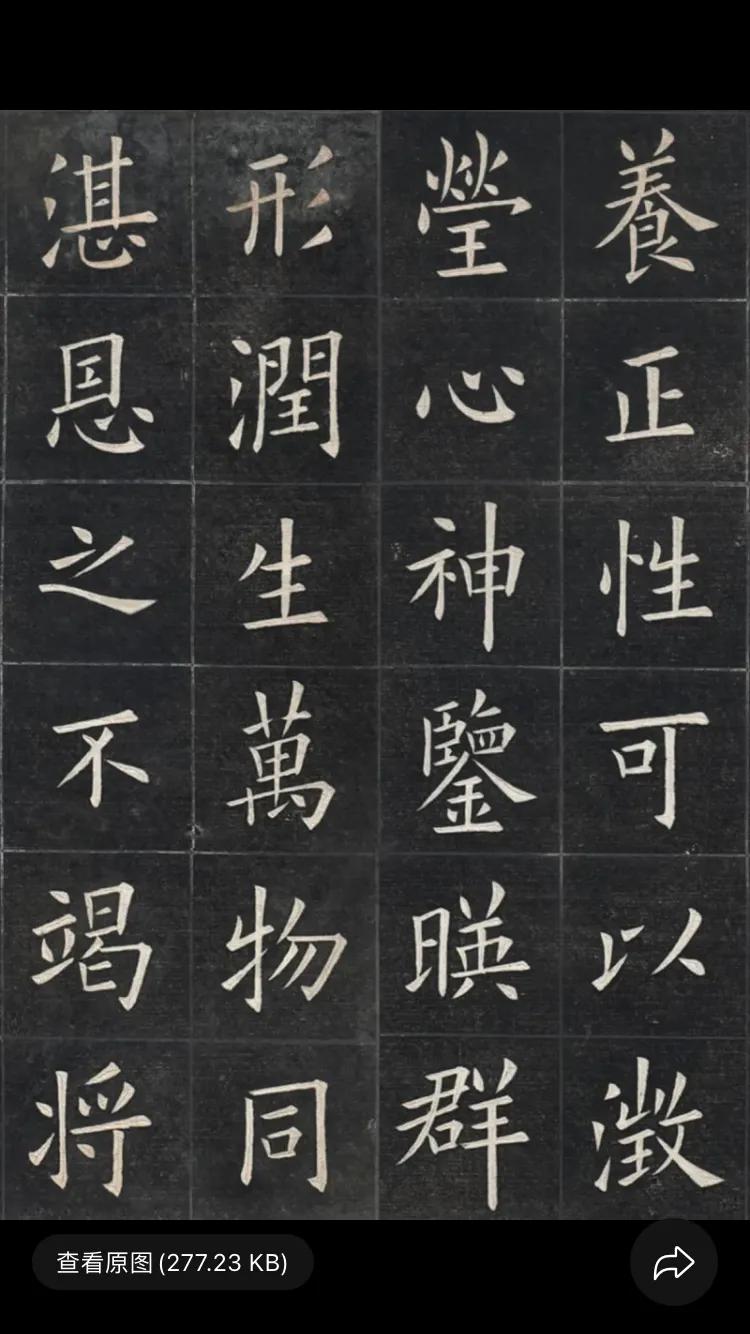 養正性可以澂
瑩心神鑒暎群
形潤生萬物同
湛恩之不竭将
查看原图(277.23 KB)